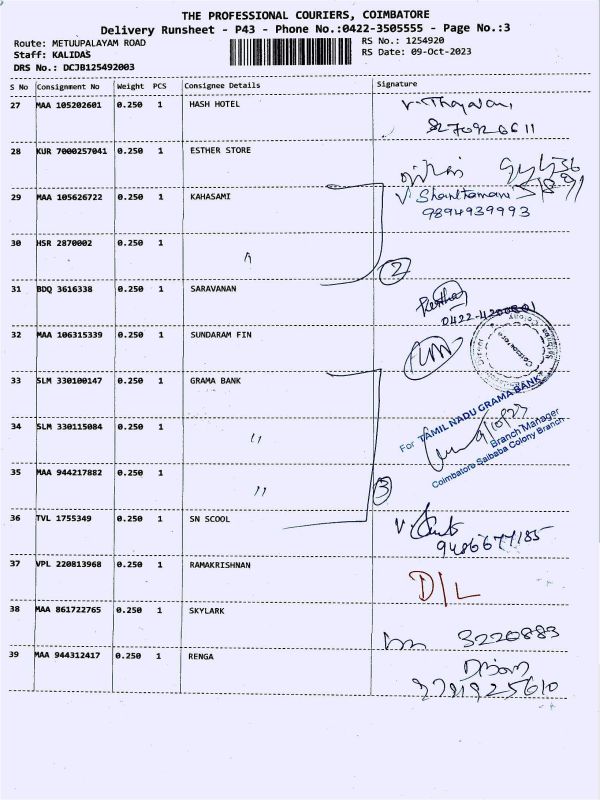 THE PROFESSIONAL COURIERS, COIMBATORE
Delivery Runsheet - P43 - Phone No.:0422-3505555 - Page No.:3
Route: METUUPALAYAM ROAD
RS No.: 1254920
Staff: KALIDAS
RS Date: 09-Oct-2023
DRS No.: DCJB125492003
S No Consignment No Weight PCS Consignee Details Signature
27 MAA 105202601 0.250 1 HASH HOTEL
28 KUR 7000257041 0.250 1 ESTHER STORE
29 MAA 105626722 0.250 1 KAHASAMI V Shanltamani
9894939993
30 HSR 2870002 0.250 1
2
31 BDQ 3616338 0.250 1 SARAVANAN
32 MAA 106315339 0.250 1 SUNDARAM FIN
33 SLM 330100147 0.250 1 GRAMA BANK
For TAMIL NADU GRAMA BANK
34 SLM 330115084 0.250 1 "
Branch Manager
Coimbatore Saibaba Colony Branch
35 MAA 944217882 0.250 1 "
3
36 TVL 1755349 0.250 1 SN SCOOL
9486677185
37 VPL 220813968 0.250 1 RAMAKRISHNAN D/L
38 MAA 861722765 0.250 1 SKYLARK 3220883
39 MAA 944312417 0.250 1 RENGA